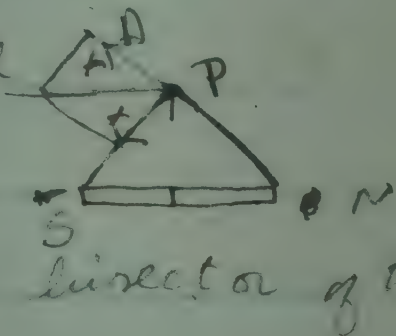 A
P
S
N
bisector of